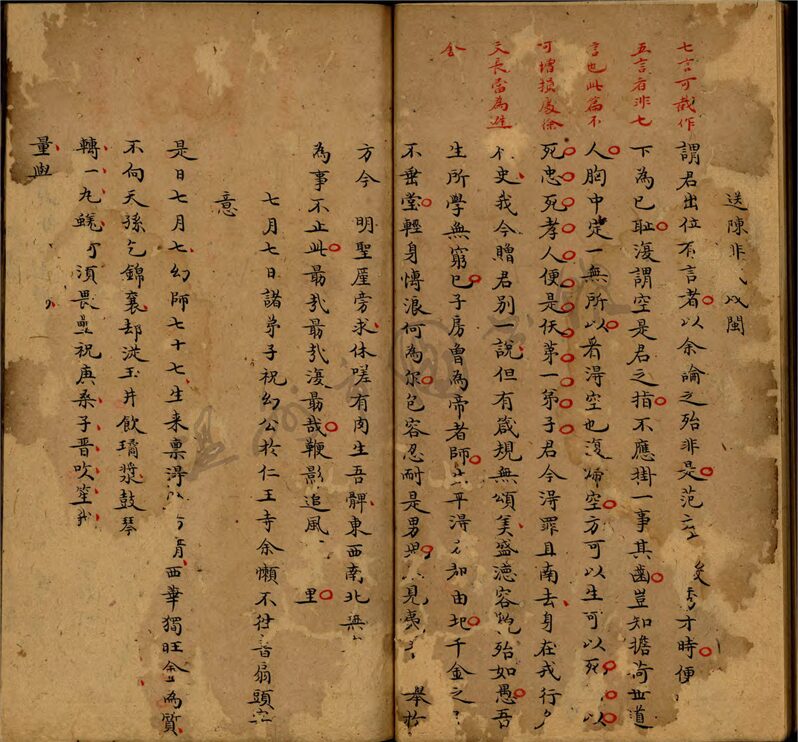 七言可哉作
五言者非七
言也此篇不
可增損處徐
文長當為避
舍
送陳非以閩
謂君出位有言者以余論之殆非是范 秀才時便
下為已恥復謂空是君之指不應掛一事其齒豈知擔荷世道
人胸中定一無所以看得空也復歸空方可以生可以死以
死忠死孝人便是佛第一弟子君今得罪且南去身在戎行
史我今贈君別一說但有箴規無頌美盛德容貌殆如愚吾
生所學無窮已子房曾為帝者師平得名知由圯千金之
不垂堂輕身慱浪何為尔包容忍耐是男見夷舉於
方今 明聖屋旁求休嗟有肉生吾髀東西南北
為事不止此最哉最哉復最哉鞭影追風 里
七月七日諸弟子祝幻公於仁王寺余懶不往書扇頭
意
是日七月七幻師七十七生來稟得 西華獨旺金為質
不向天孫乞錦襄却從玉井飲璚漿鼓琴
轉一九 須畏壘祝庚桑子晉吹笙
量與